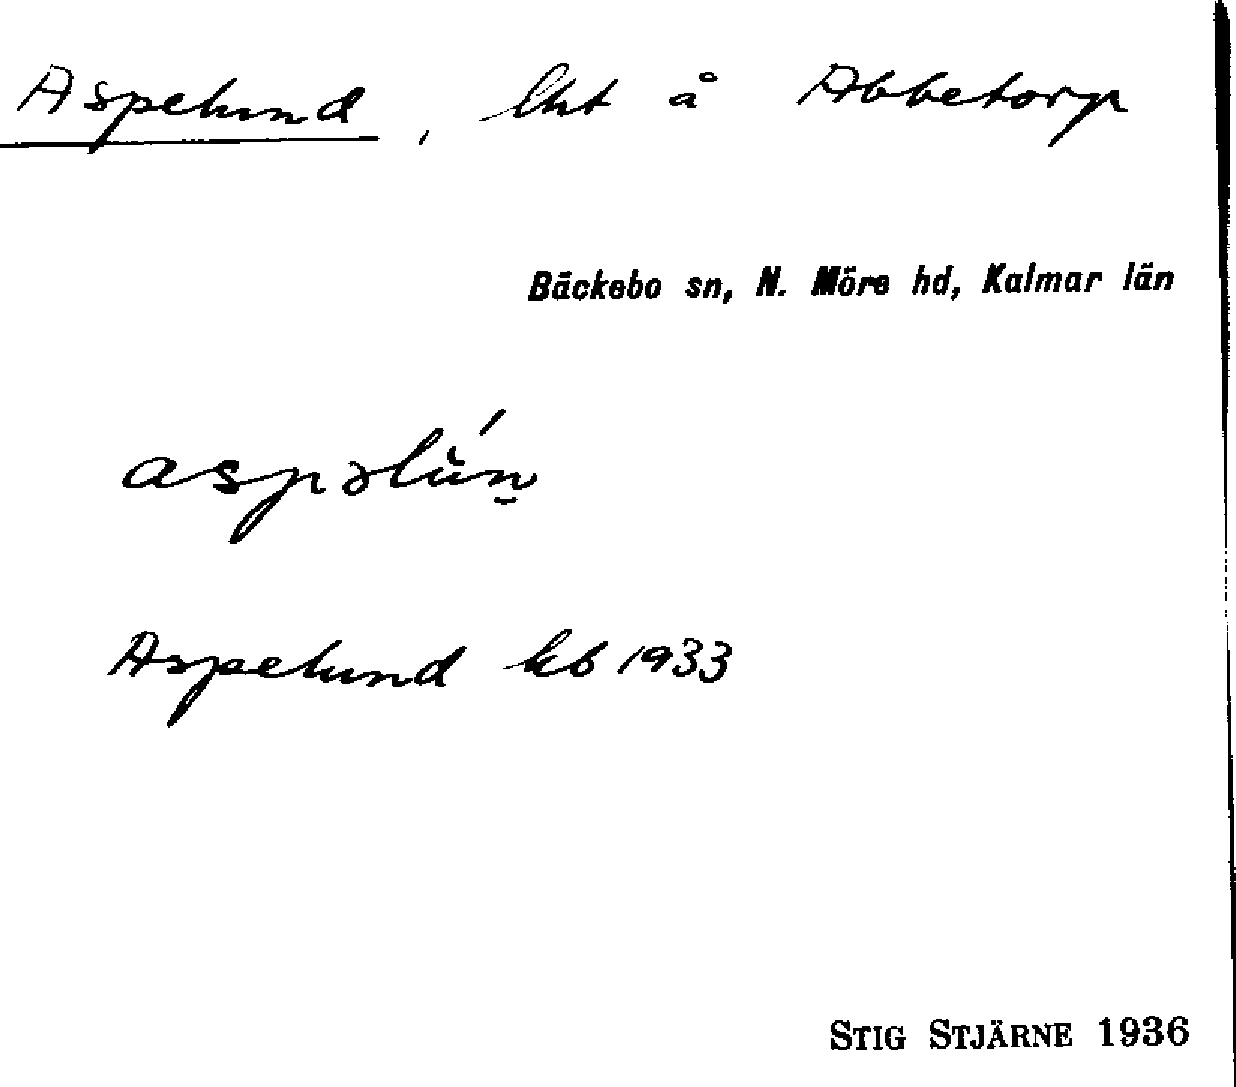 Aspelund, lht å Abbetorp
Bäckebo sn, N. Möre hd, Kalmar län
aspəlún̠
Aspelund kb 1933
STIG STJÄRNE 1936